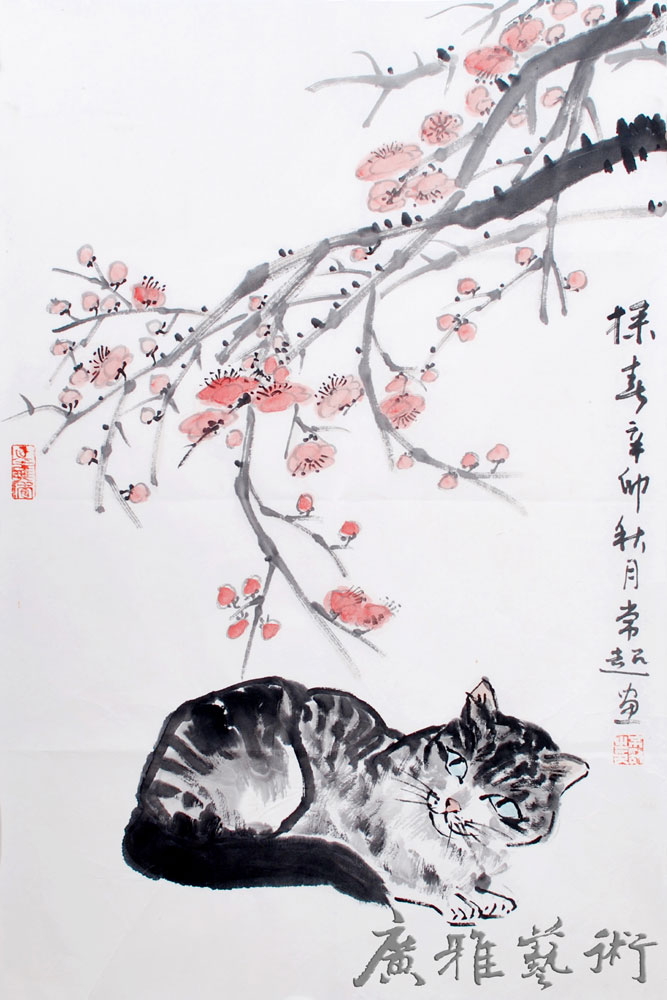 探春辛卯秋月常超画
廣雅藝術